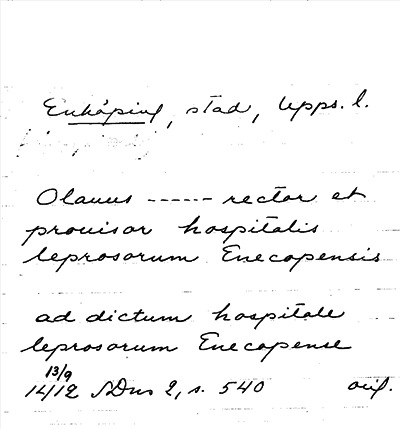 Enköping, stad, Upps. l.
Olauus ------ rector et
prouisor hospitalis
leprosorum Enecopensis
ad dictum hospitale
leprosorum Enecopense
13/9
1412 SDns 2, s. 540 orig.